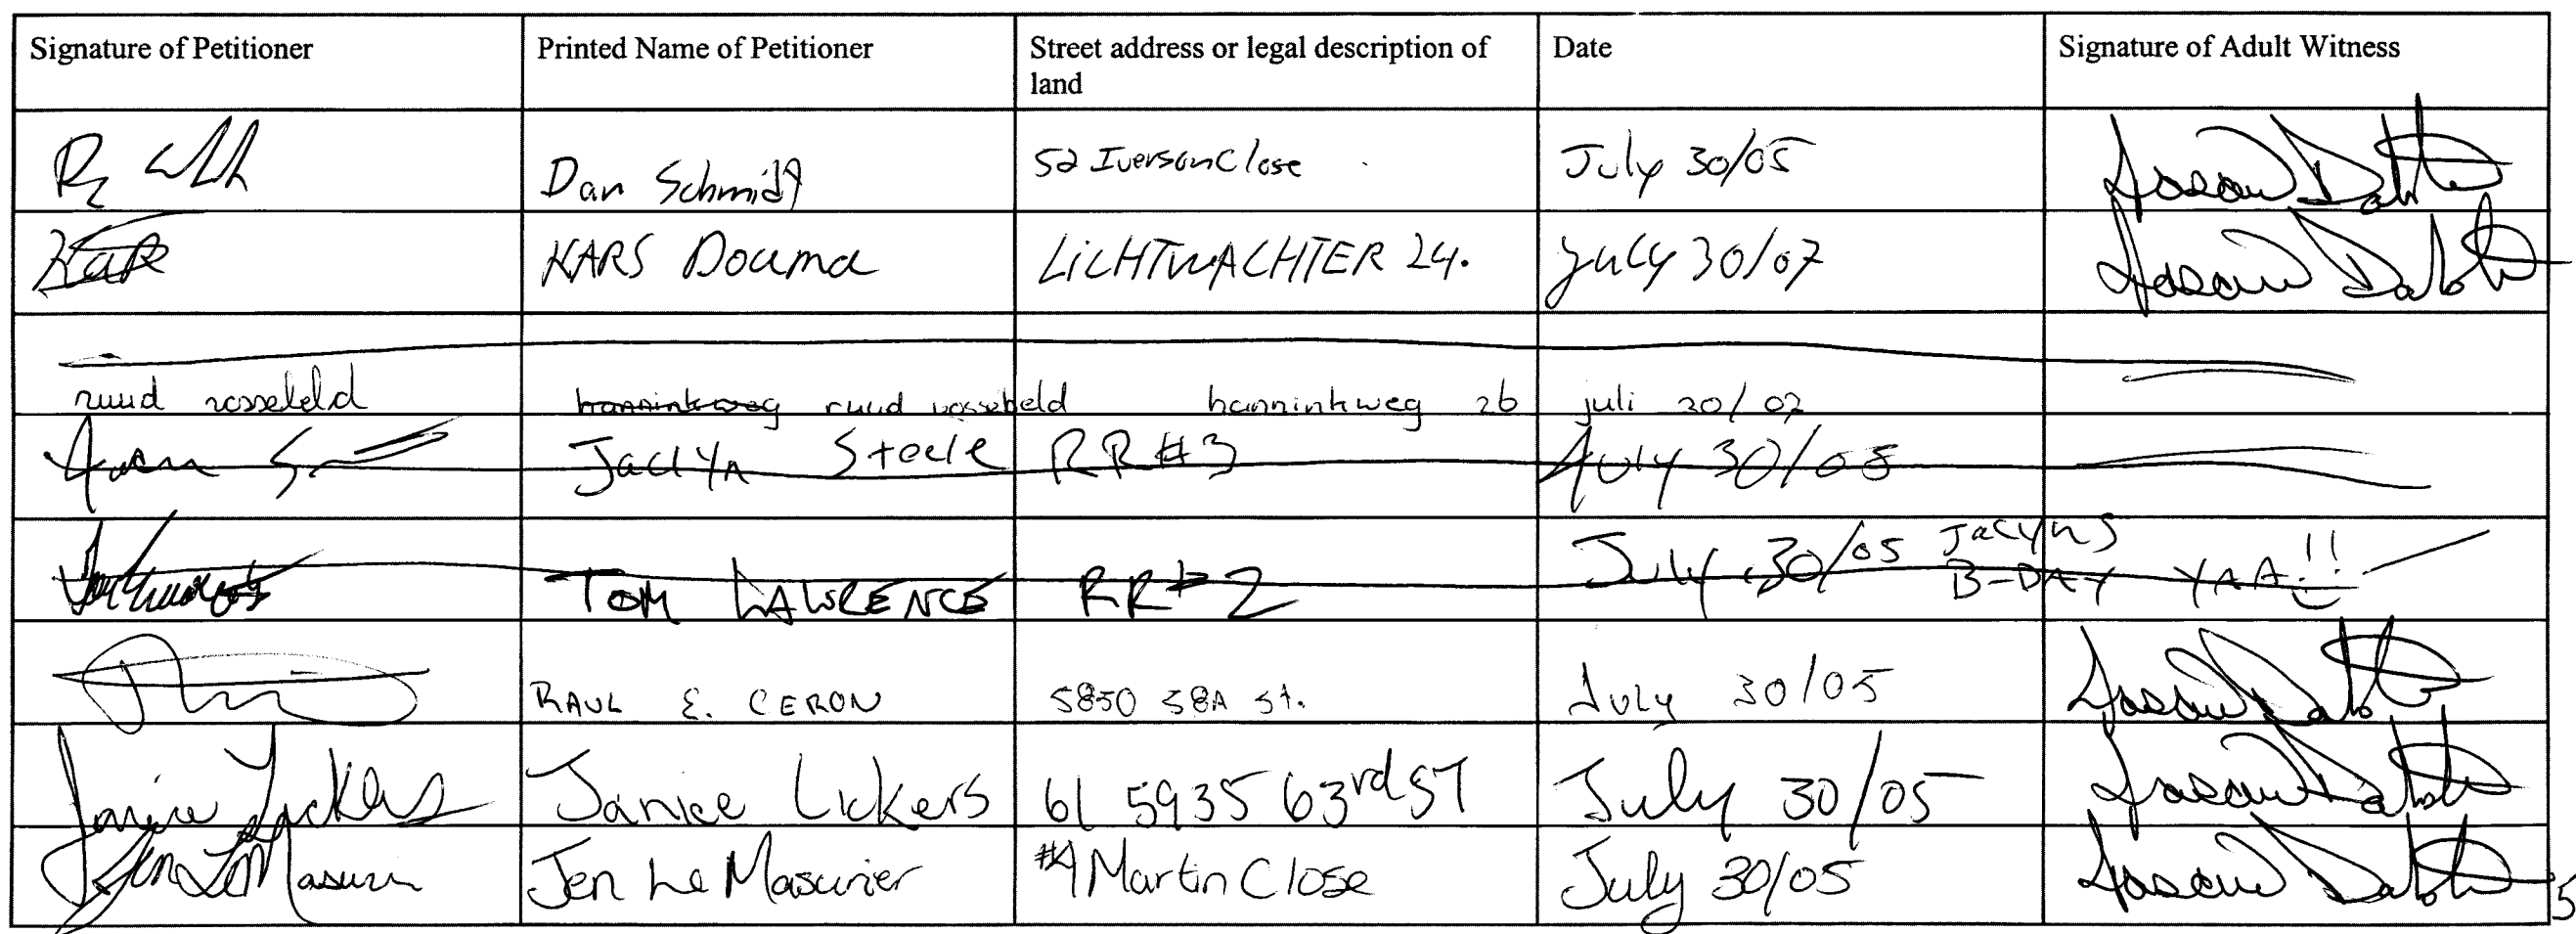 Signature of Petitioner Printed Name of Petitioner Street address or legal description of land Date Signature of Adult Witness
Dan Schmidt 52 Iverson Close July 30/05
KARS Douma LiCHTWACHTER 24. July 30/07
ruud vossebeld hanninkweg ruud vossebeld hanninkweg 26 juli 30/07
Jaclyn Steele RR#3 July 30/05
TOM LAWRENCE RR#2 July 30/05 Jaclyns B-DAY YAA!!
RAUL E. CERON 5850 58A St. July 30/05
Janice Lickers Janice Lickers 61 5935 63rd ST July 30/05
Jen LeMasurier Jen Le Masurier #4 Martin Close July 30/05
5